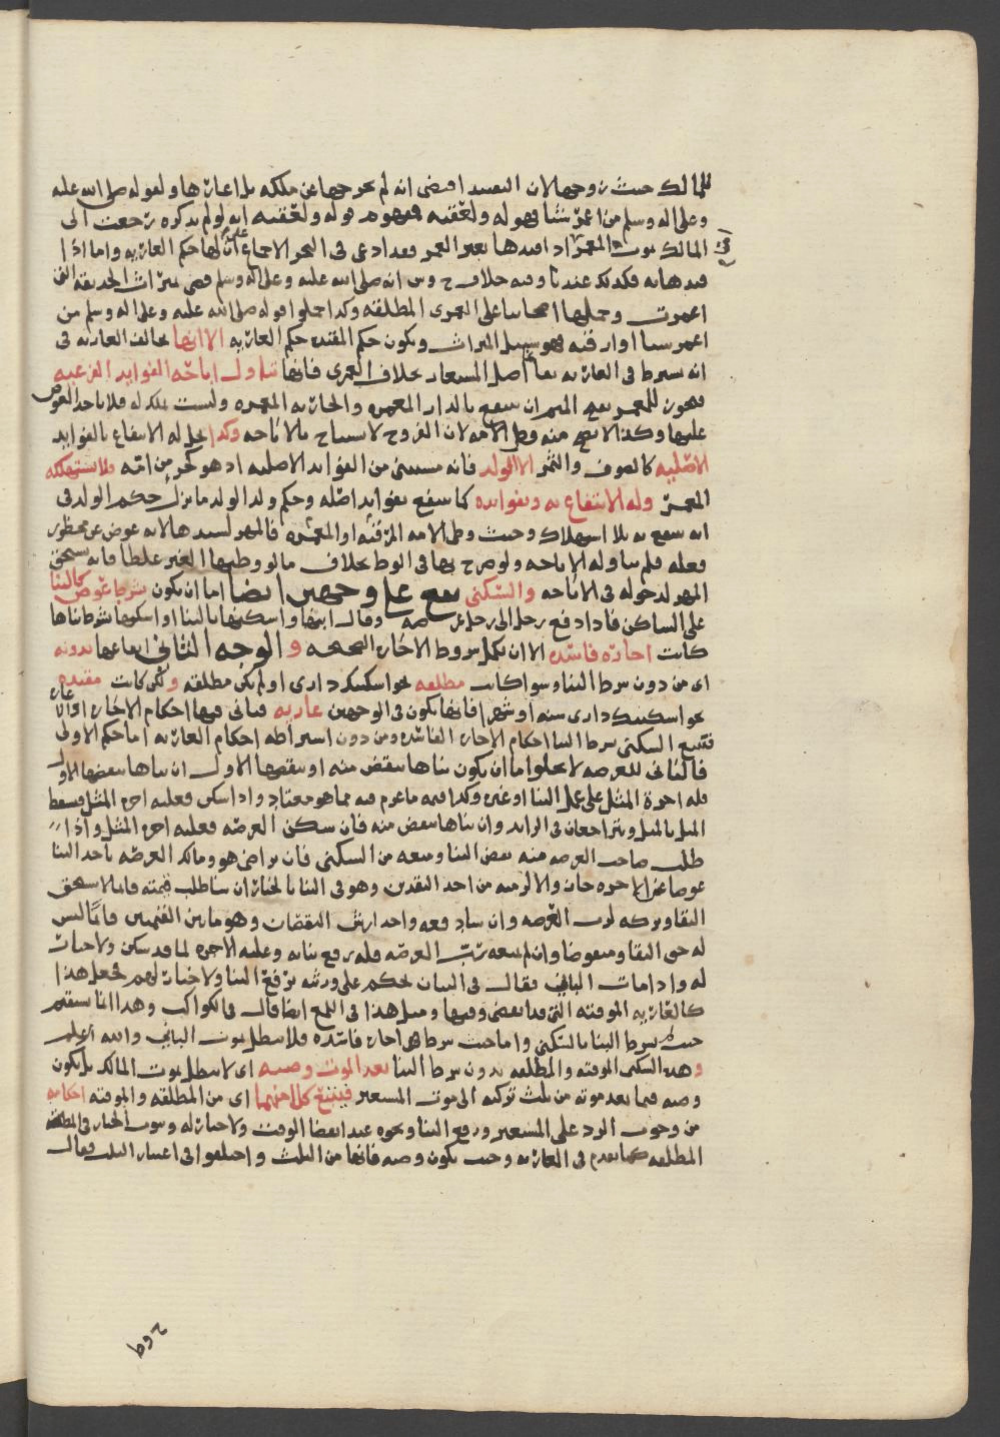 للمالك حيث زوجها لان التقييد اقتضى انه لم يخرجها عن ملكه بل اعارها ولقوله صلى الله عليه
وعلى اله وسلم من اعمر شيا فهو له ولعقبه فمفهوم قوله ولعقبه انه لو لم يذكره رجعت الى
المالك بموت المعمر اذ اقيدها بعمر المعمر فقد ادعى في البحر الاجماع على ان لها حكم العاريه واما اذا
قيدها به فكذلك عندنا وفيه خلاف ح وش انه صلى الله عليه وعلى اله وسلم قضى بميراث الحديقه التي
اعمرت وحملها اصحابنا على العمرى المطلقه وكذا حملوا قوله صلى الله عليه وعلى اله وسلم من
اعمر شيا او ارقبه فهو سبيل الميراث ويكون حكم المقيده حكم العاريه الا انها تخالف العاريه في
انه يشترط في العاريه بقا اصل المستعار بخلاف العمرى فانها تتناول اباحة الفوايد الفرعيه
فيجوز للمعمر بيع الثمر ان ينتفع بالدار المعمره والجاريه المعمره وليست بملك له فلا ياخذ العوض
عليها وكذا لا يصح منه وطى الامه لان الفروج لا تستباح بالاباحه وكذا يحل له الانتفاع بالفوايد
الاصليه كالصوف والثمر الا الولد فانه مستثنى من الفوايد الاصليه اذ هو كجزء من امه فلا يستهلكه
المعمر وله الانتفاع به وبفوايده كما ينتفع بفوايد اصله وحكم ولد الولد ما نزل حكم الولد في
انه ينتفع به بلا استهلاك وحيث وطى الامه المرقبه او المعمره فالمهر لسيدها لانه عوض عن محظور
فعله فلم يتناوله الاباحه ولو صرح بها في الوطى بخلاف ما لو وطيها الغير غلطا فانه يستحق
المهر لدخوله في الاباحه والسكنى تقع على وجهين ايضا اما ان يكون بشرط عوض كالبنا
على الساكن فاذا دفع رجل الى رجل عرصه وقال ابنها واسكنها بالبنا او اسكنها بشرط بناها
كانت اجارة فاسده الا ان تكمل شروط الاجاره الصحيحه والوجه الثاني ايقاعها بدونه
اي من دون شرط البنا وسوا كانت مطلقه نحو اسكنتك داري او لم يكن مطلقه ولكن كانت مقيده
نحو اسكنتك داري سنه او شهرا فانها تكون في الوجهين عاريه فياتي فيها احكام الاجاره او العاريه
فتتبع السكنى بشرط البنا احكام الاجاره الفاسده ومن دون اشتراطه احكام العاريه اما حكم الاولى
فالباني للعرصه لا يخلو اما ان يكون بناها بنقض منه او بنقضها الاول ان بناها بنقضها الاول
فله اجرة المثل على عمل البنا او غيره وكذا قيمة ما غرم فيه مما هو معتاد واذا سكن فعليه اجرة المثل فيسقط
المثل بالمثل ويتراجعان في الزايد وان بناها بنقض منه فان سكن العرصه فعليه اجرة المثل واذا
طلب صاحب العرصه منه نقض البنا ومنعه من السكنى فان تراضى هو ومالك العرصه ياخذ البنا
عوضا عن الاجره جاز والا لزمه من احد النقدين وهو في البنا بالخيار ان شا طلب قيمته قايما لا يستحق
البقا وتركه لرب العرصه وان شا رفعه واخذ ارش النقصان وهو ما بين القيمتين قايما ليس
له حق البقا ومنقوضا وان لم يمنعه رب العرصه فله رفع بنايه وعليه الاجره لما قد سكن ولا خيار
له واذا مات الباني فقال في البيان يحكم على ورثته برفع البنا ولا خيار لهم فجعل هذا
كالعاريه الموقته التي قد انقضى وقتها ومثل هذا في اللمع ايضا قال في الكواكب وهذا انما يستقيم
حيث شرط البنا بالسكنى واما حيث شرط اجاره فاسده فلا تبطل بموت الباني والله اعلم
وهذه السكنى الموقته والمطلقه بدون شرط البنا بعد الموت وصيه اي لا تبطل بموت المالك بل يكون
وصيه فيما بعد موته من ثلث تركته الى موت المستعير فيتبع كلا منهما اي من المطلقه والموقته احكامه
من وجوب الرد على المستعير ورفع البنا ونحوه عند انقضا الوقت ولا خيار له وثبوت الخيار في المطلقه
المطلقه كما تقدم في العاريه وحيث يكون وصيه فانها من الثلث واختلفوا في اعتبار الثلث فقال